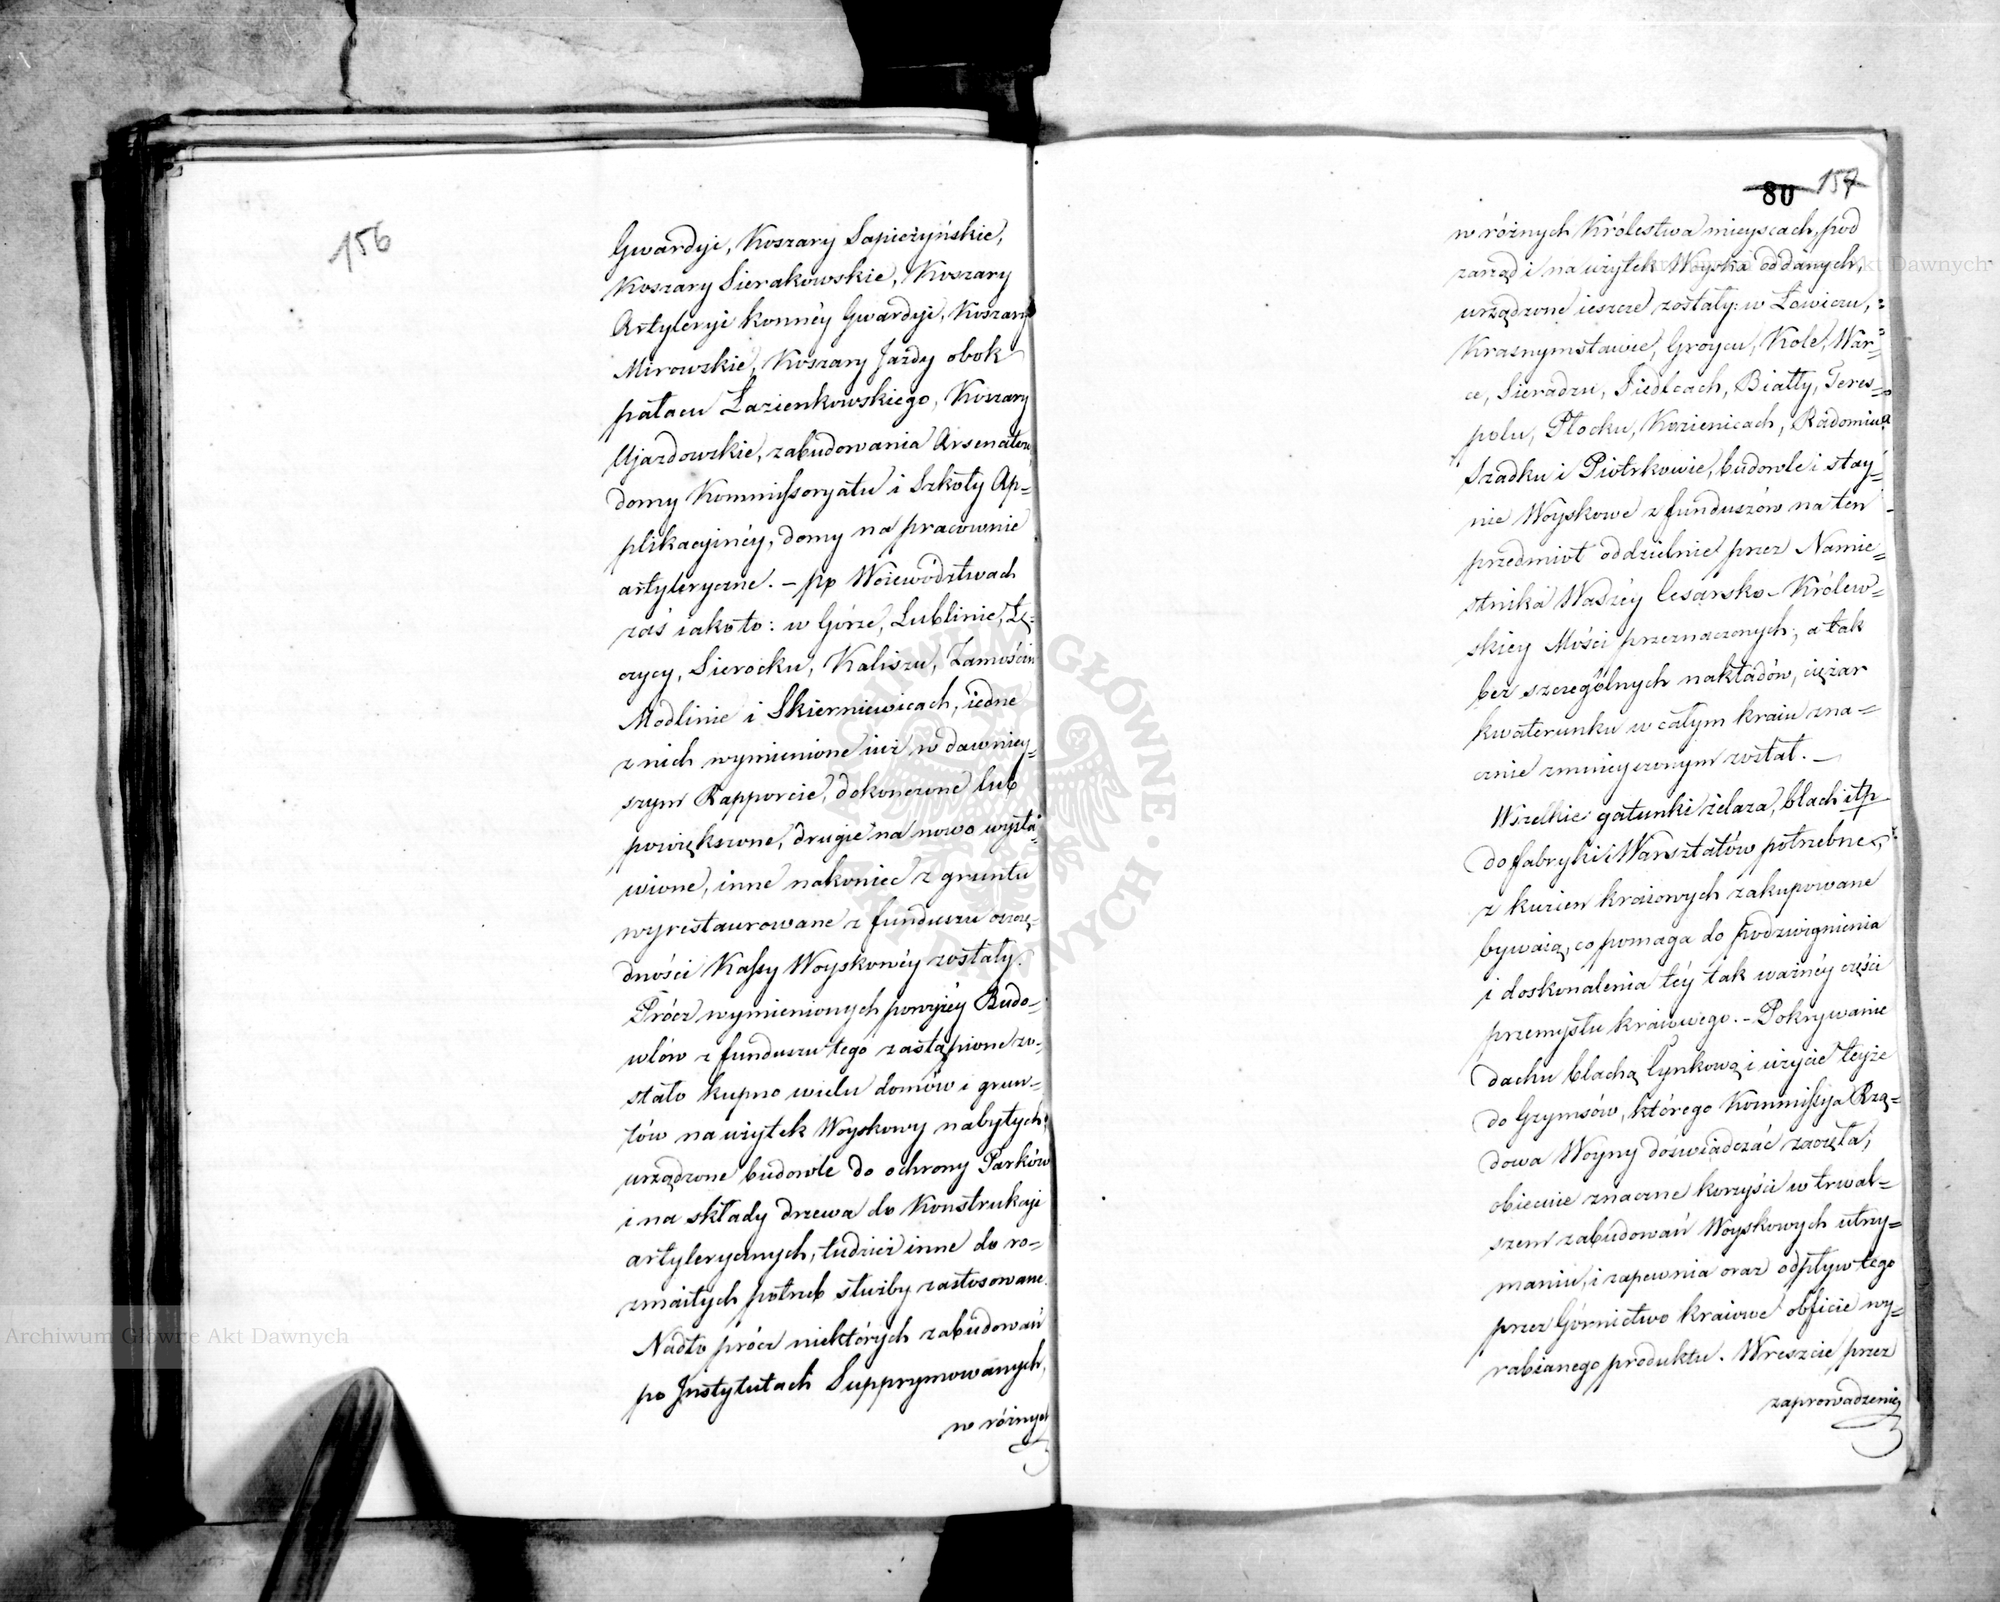 156
Gwardyi, Koszary Sapieżyńskie,
Koszary Sierakowskie, Koszary
Artyleryi konnéy Gwardyi, Koszary
Mirowskie, Koszary Jazdy obok
pałacu Łazienkowskiego, Koszary
Ujazdowskie, zabudowania Arsenałow,
domy Kommissoryatu i Szkoły Ap=
plikacyinéy, domy na pracownie
artyleryczne. – po Woiewództwach
zaś iakoto: w Górze, Lublinie, Łę=
czycy, Sierocku, Kaliszu, Zamościu
Modlinie i Skierniewicach, iedne
z nich wymienione iuż w dawniey=
szym Rapporcie, dokończone lub
powiększone, drugie na nowo wysta=
wione, inne nakoniec z gruntu
wyrestaurowane z funduszu oszczę=
dności Kassy Woyskowéy zostały.
Prócz wymienionych powyżéy Budo=
wlów z funduszu tego zastąpione zo=
stało kupno wielu domów i grun=
tów na użytek Woyskowy nabytych;
urządzone budowle do ochrony Parków
i na składy drzewa do Konstrukcyi
artylerycznych, tudzież inne do ro=
zmaitych potrzeb służby zastosowane.
Nadto prócz niektórych zabudowań
po Instytutach Supprymowanych,
w różnych
80 157
w różnych Królestwa mieyscach, pod
zarząd i na użytek Woyska oddanych,
urządzone ieszcze zostały: w Łowiczu,
Krasnymstawie, Groycu, Kole, War=
ce, Sieradzu, Siedlcach, Biały, Teres=
polu, Płocku, Kozienicach, Radomiu,
Szadku i Piotrkowie, budowle i stay=
nie Woyskowe z funduszów na ten
przedmiot oddzielnie przez Namie=
stnika Waszéy Cesarsko-Królew=
skiey Mości przeznaczonych; a tak
bez szczególnych nakładów, ciężar
kwaterunku w całym kraiu zna=
cznie zmnieyszonym został. –
Wszelkie gatunki żelaza, blach itp
do fabryki i Warsztatów potrzebne,
z kuzien kraiowych zakupowane
bywaią, co pomaga do podzwignienia
i doskonalenia téy tak ważnéy części
przemysłu kraiowego. – Pokrywanie
dachu blachą Cynkową i użycie teyże
do Gzymsów, którego Kommissya Rzą=
dowa Woyny doświadczać zaczęła,
obiecuie znaczne korzyści w trwal=
szem zabudowań Woyskowych utrzy=
maniu, i zapewnia oraz odpływ tego
przez Górnictwo kraiowe obficie wy=
rabianego produktu. Wreszcie przez
zaprowadzenie
Archiwum Główne Akt Dawnych